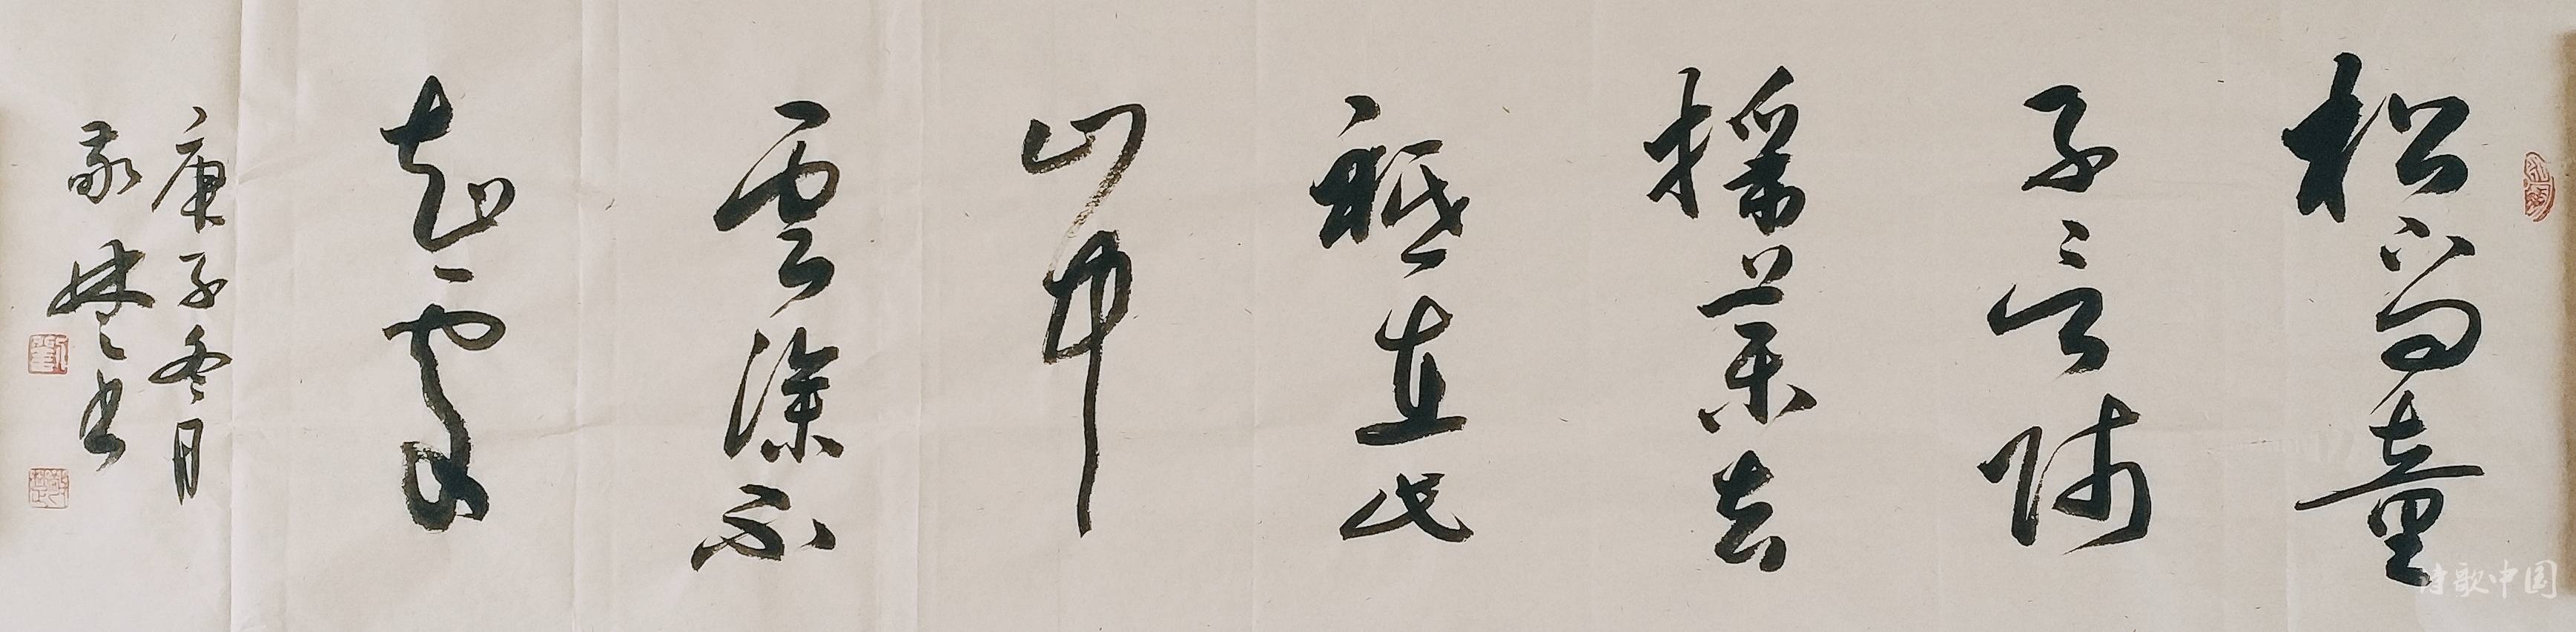 松下问童
子言师
採药去
祗在此
山中
雲深不
知處
庚子冬月
敬林书
诗歌中国